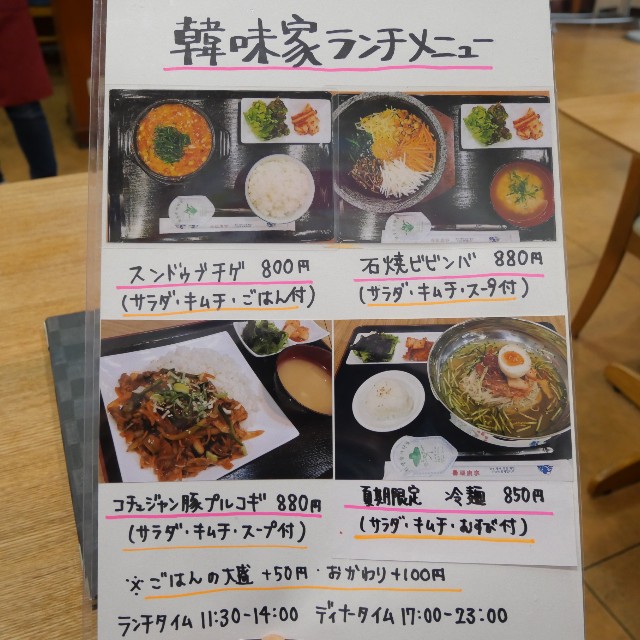 韓味家ランチメニュー
スンドゥブチゲ 800円
(サラダ・キムチ・ごはん付)
石焼ビビンバ 880円
(サラダ・キムチ・スープ付)
コチュジャン豚プルコギ 880円
(サラダ・キムチ・スープ付)
夏期限定 冷麺 850円
(サラダ・キムチ・むすび付)
※ごはんの大盛+50円・おかわり+100円
ランチタイム 11:30-14:00 ディナータイム 17:00-23:00